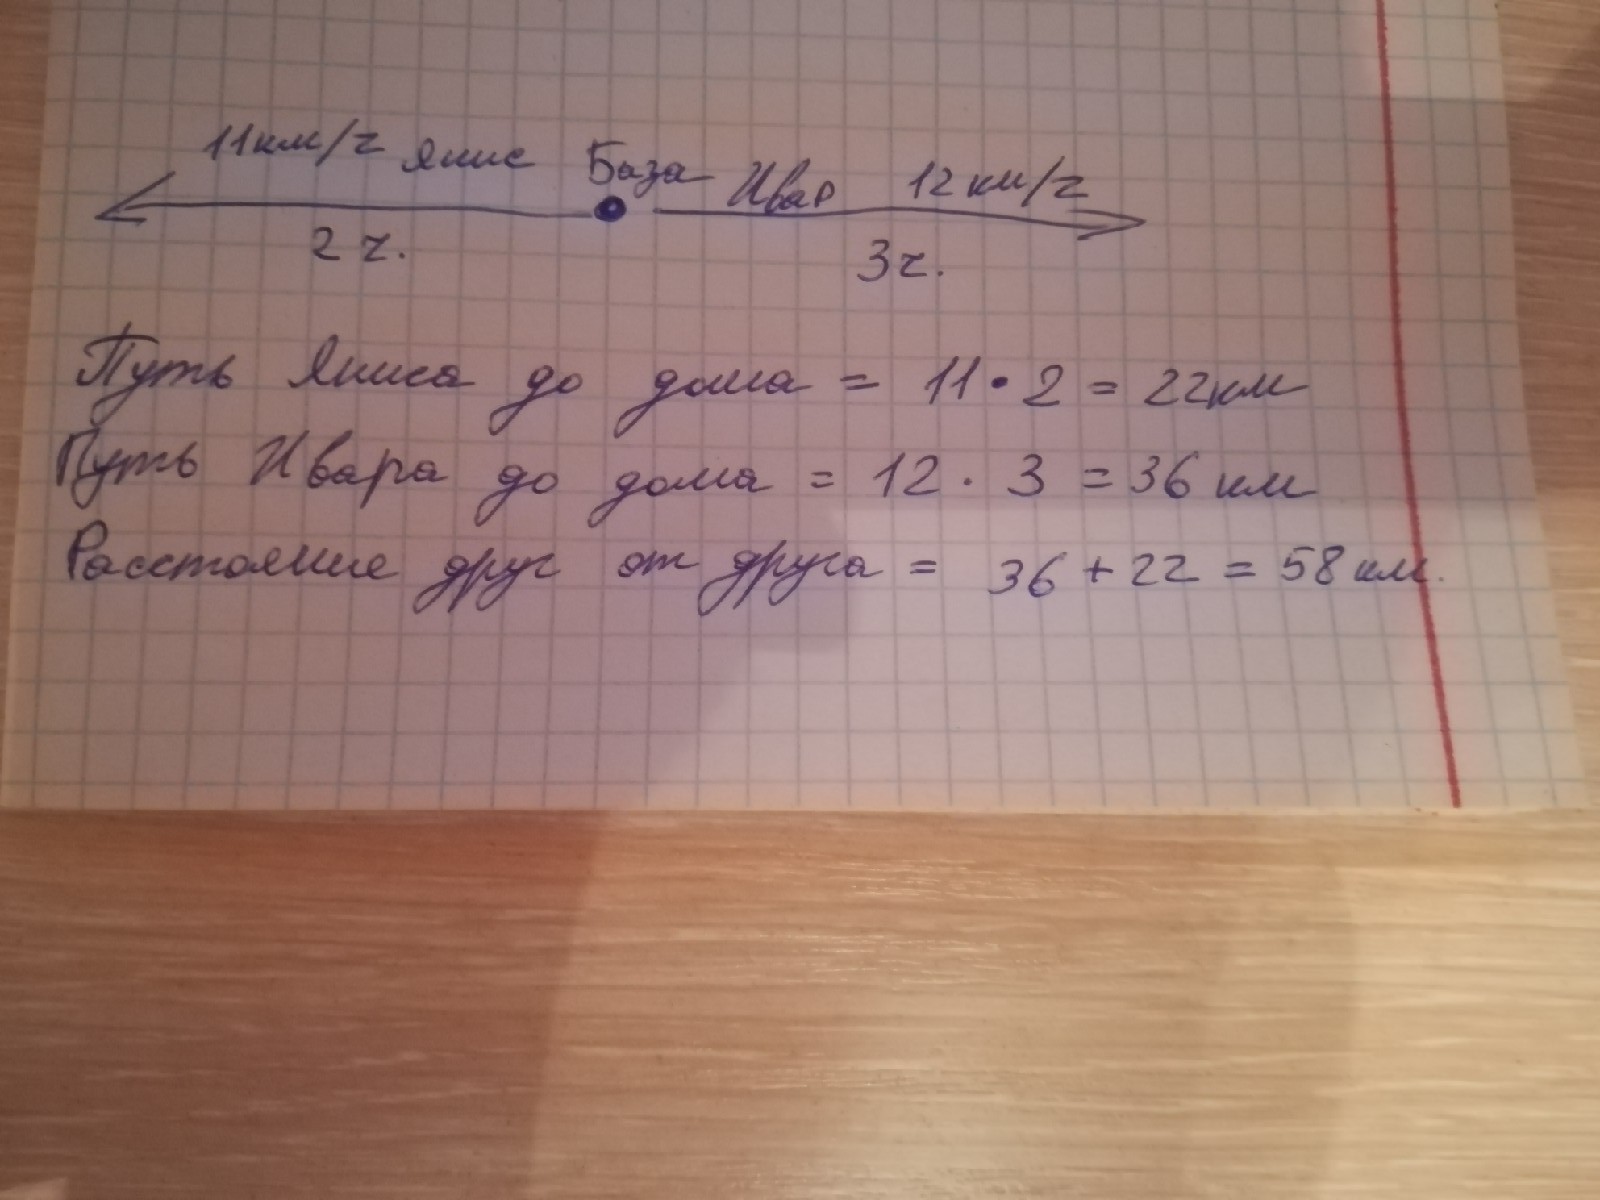 11км/ч Янис База Ивар 12км/ч
2 ч. 3ч.
Путь Яниса до дома = 11 • 2 = 22км
Путь Ивара до дома = 12 · 3 = 36 км
Расстояние друг от друга = 36 + 22 = 58 км.